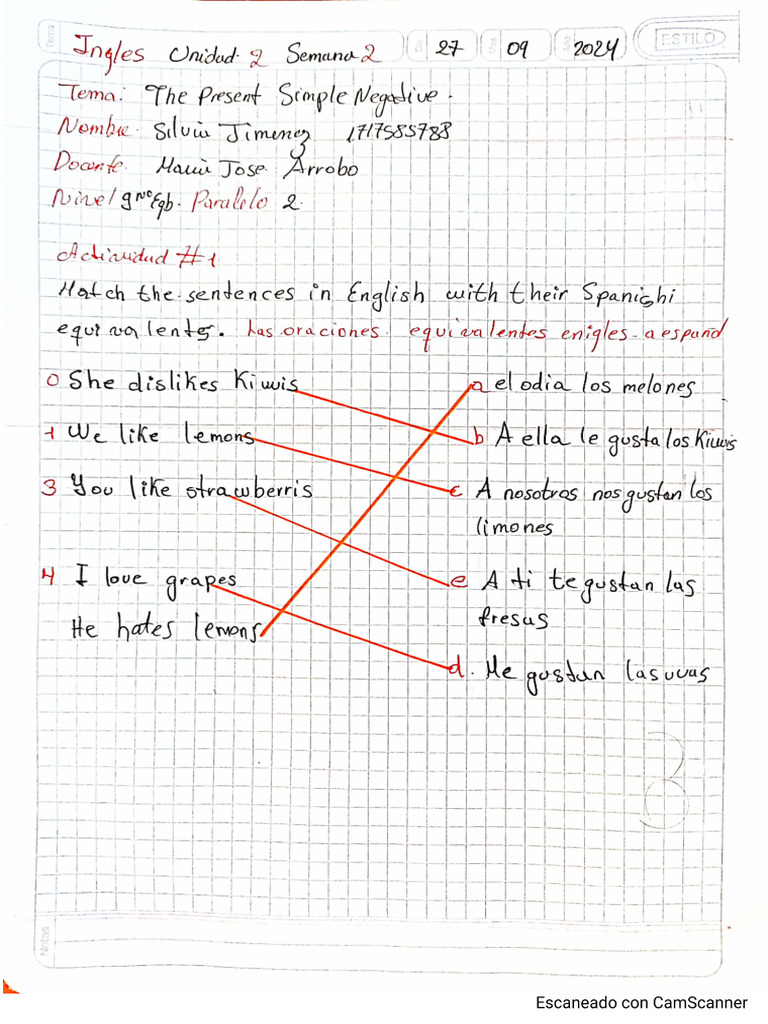 Ingles Unidad. 2 Semana 2 27 09 2024 ESTILO
Tema: The Present Simple Negative.
Nombre. Silvia Jimenez 1717585788
Docente. Maria Jose. Arrobo
Nivel 9no Egb. Paralelo 2.
Actividad #1
Match the sentences in English with their Spanishi
equivalents. Las oraciones. equivalentes enigles-a español
0 She dislikes Kiwis
a el odia los melones
1 We like lemons
b A ella le gusta los Kiuwis
3 You like strawberris
c A nosotros nos gustan los
limones
4 I love grapes
e A ti te gustan las
fresas
He hates lemons
d. Me gustan las uvas
3
Notas
Escaneado con CamScanner